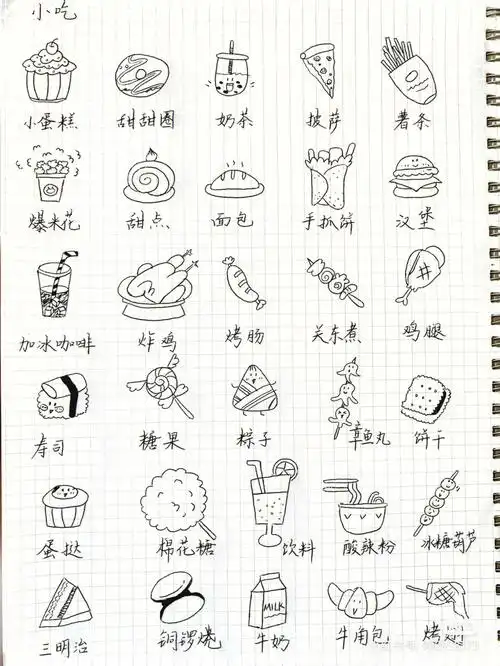 小吃
小蛋糕 甜甜圈 奶茶 披萨 薯条
爆米花 甜点 面包 手抓饼 汉堡
加冰咖啡 炸鸡 烤肠 关东煮 鸡腿
寿司 糖果 粽子 章鱼丸 饼干
蛋挞 棉花糖 饮料 酸辣粉 冰糖葫芦
MILK
三明治 铜锣烧 牛奶 牛角包 烤